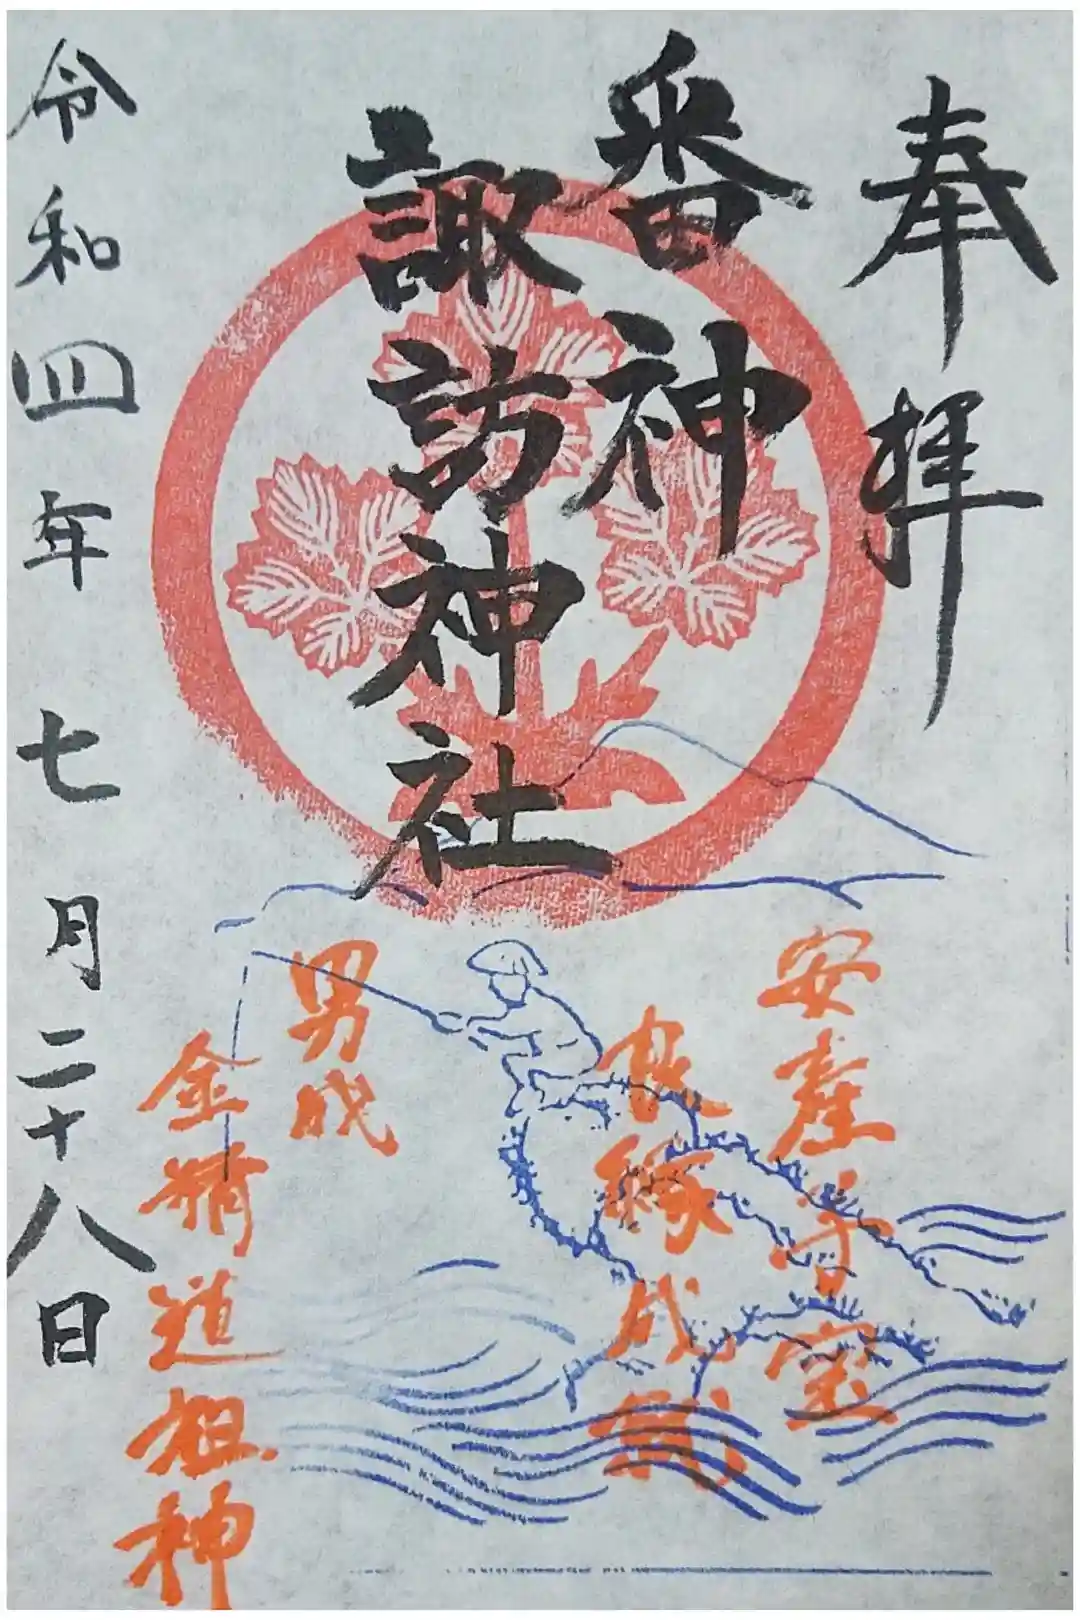 奉拝
番神
諏訪神社
令和四年七月二十八日
安産子宝
良縁成就
男成
金精道祖神